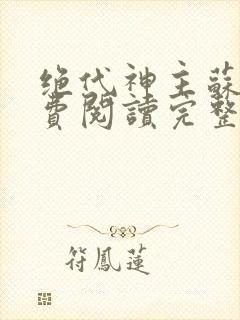 绝代神主蘇
費閱讀完整
符鳳蓮